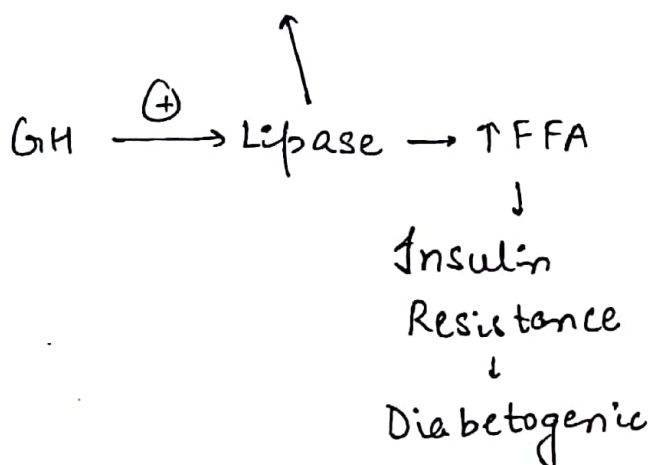 GH ⊕→ Lipase → ↑FFA
↓
Insulin
Resistance
↓
Diabetogenic